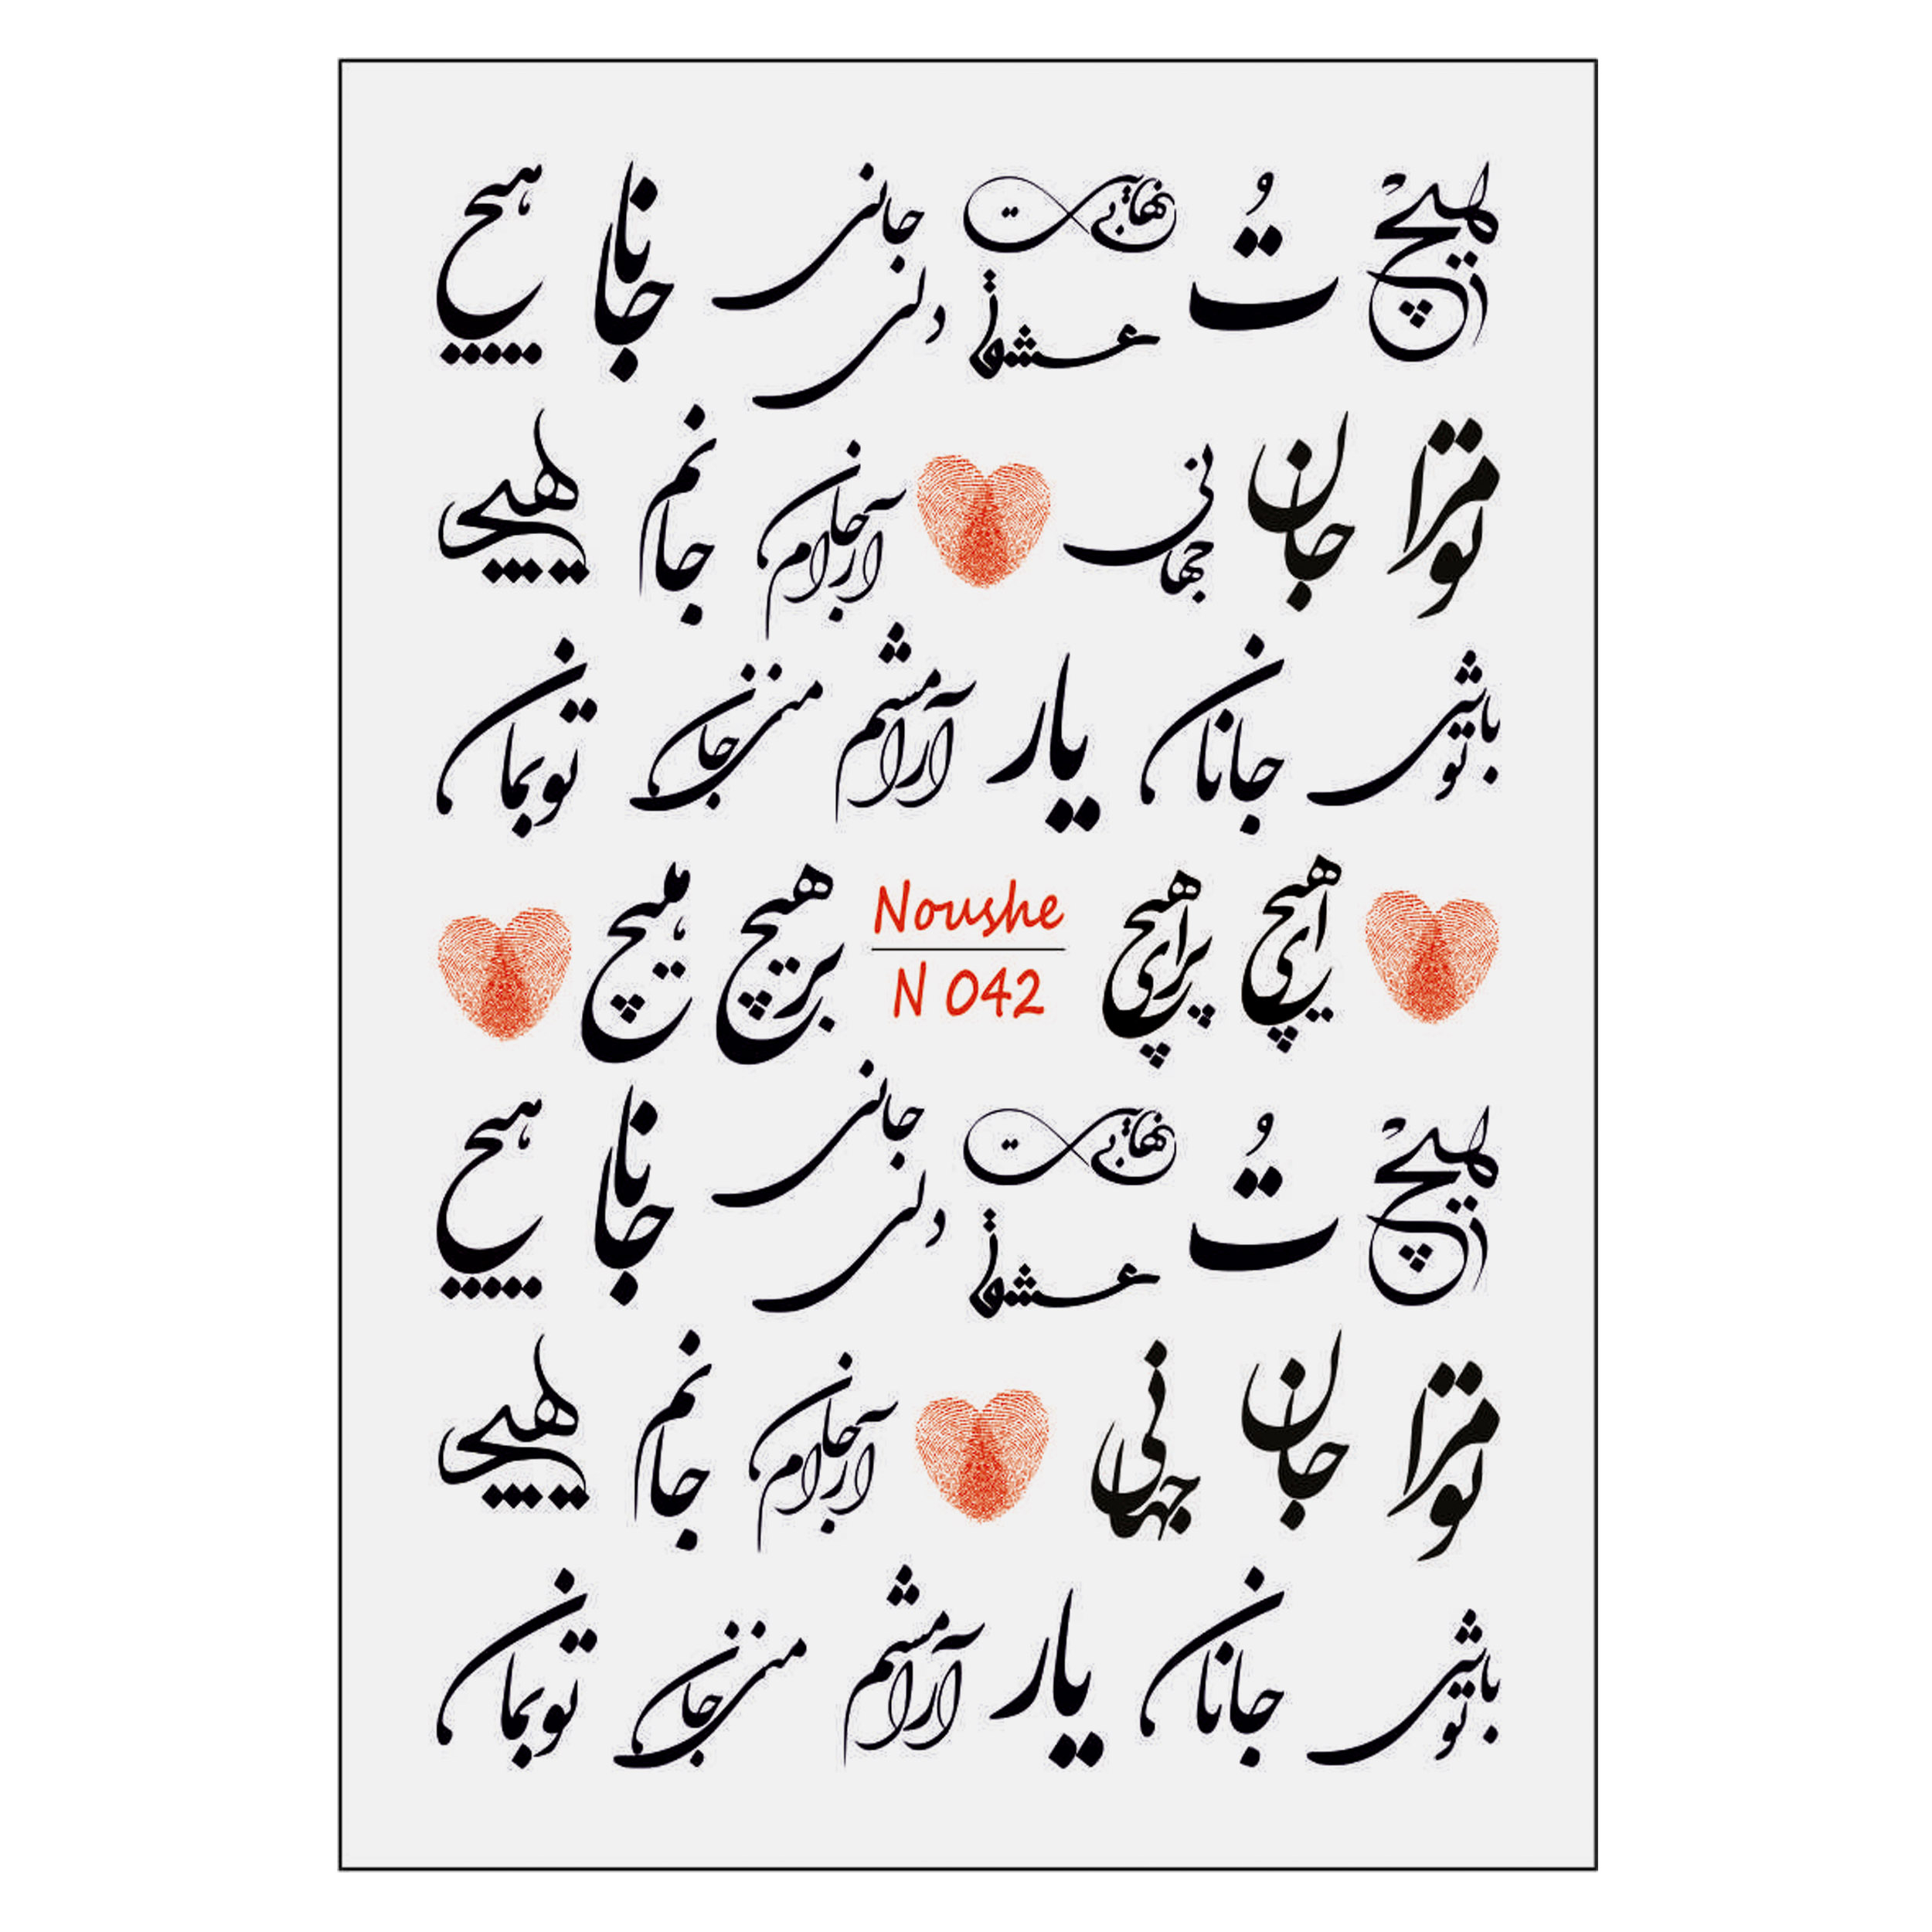 هیچ تُ بی نهایت عشق جانی دلی جانا هیچ
تو مرا جان جهانی آرام جان جانم هیچ
تو باشی جانان یار آرامشم جان منی تو بمان
ای هیچ برای هیچ Noushe بر هیچ هیچ
N 042
هیچ تُ بی نهایت عشق جانی دلی جانا هیچ
تو مرا جان جهانی آرام جان جانم هیچ
تو باشی جانان یار آرامشم جان منی تو بمان